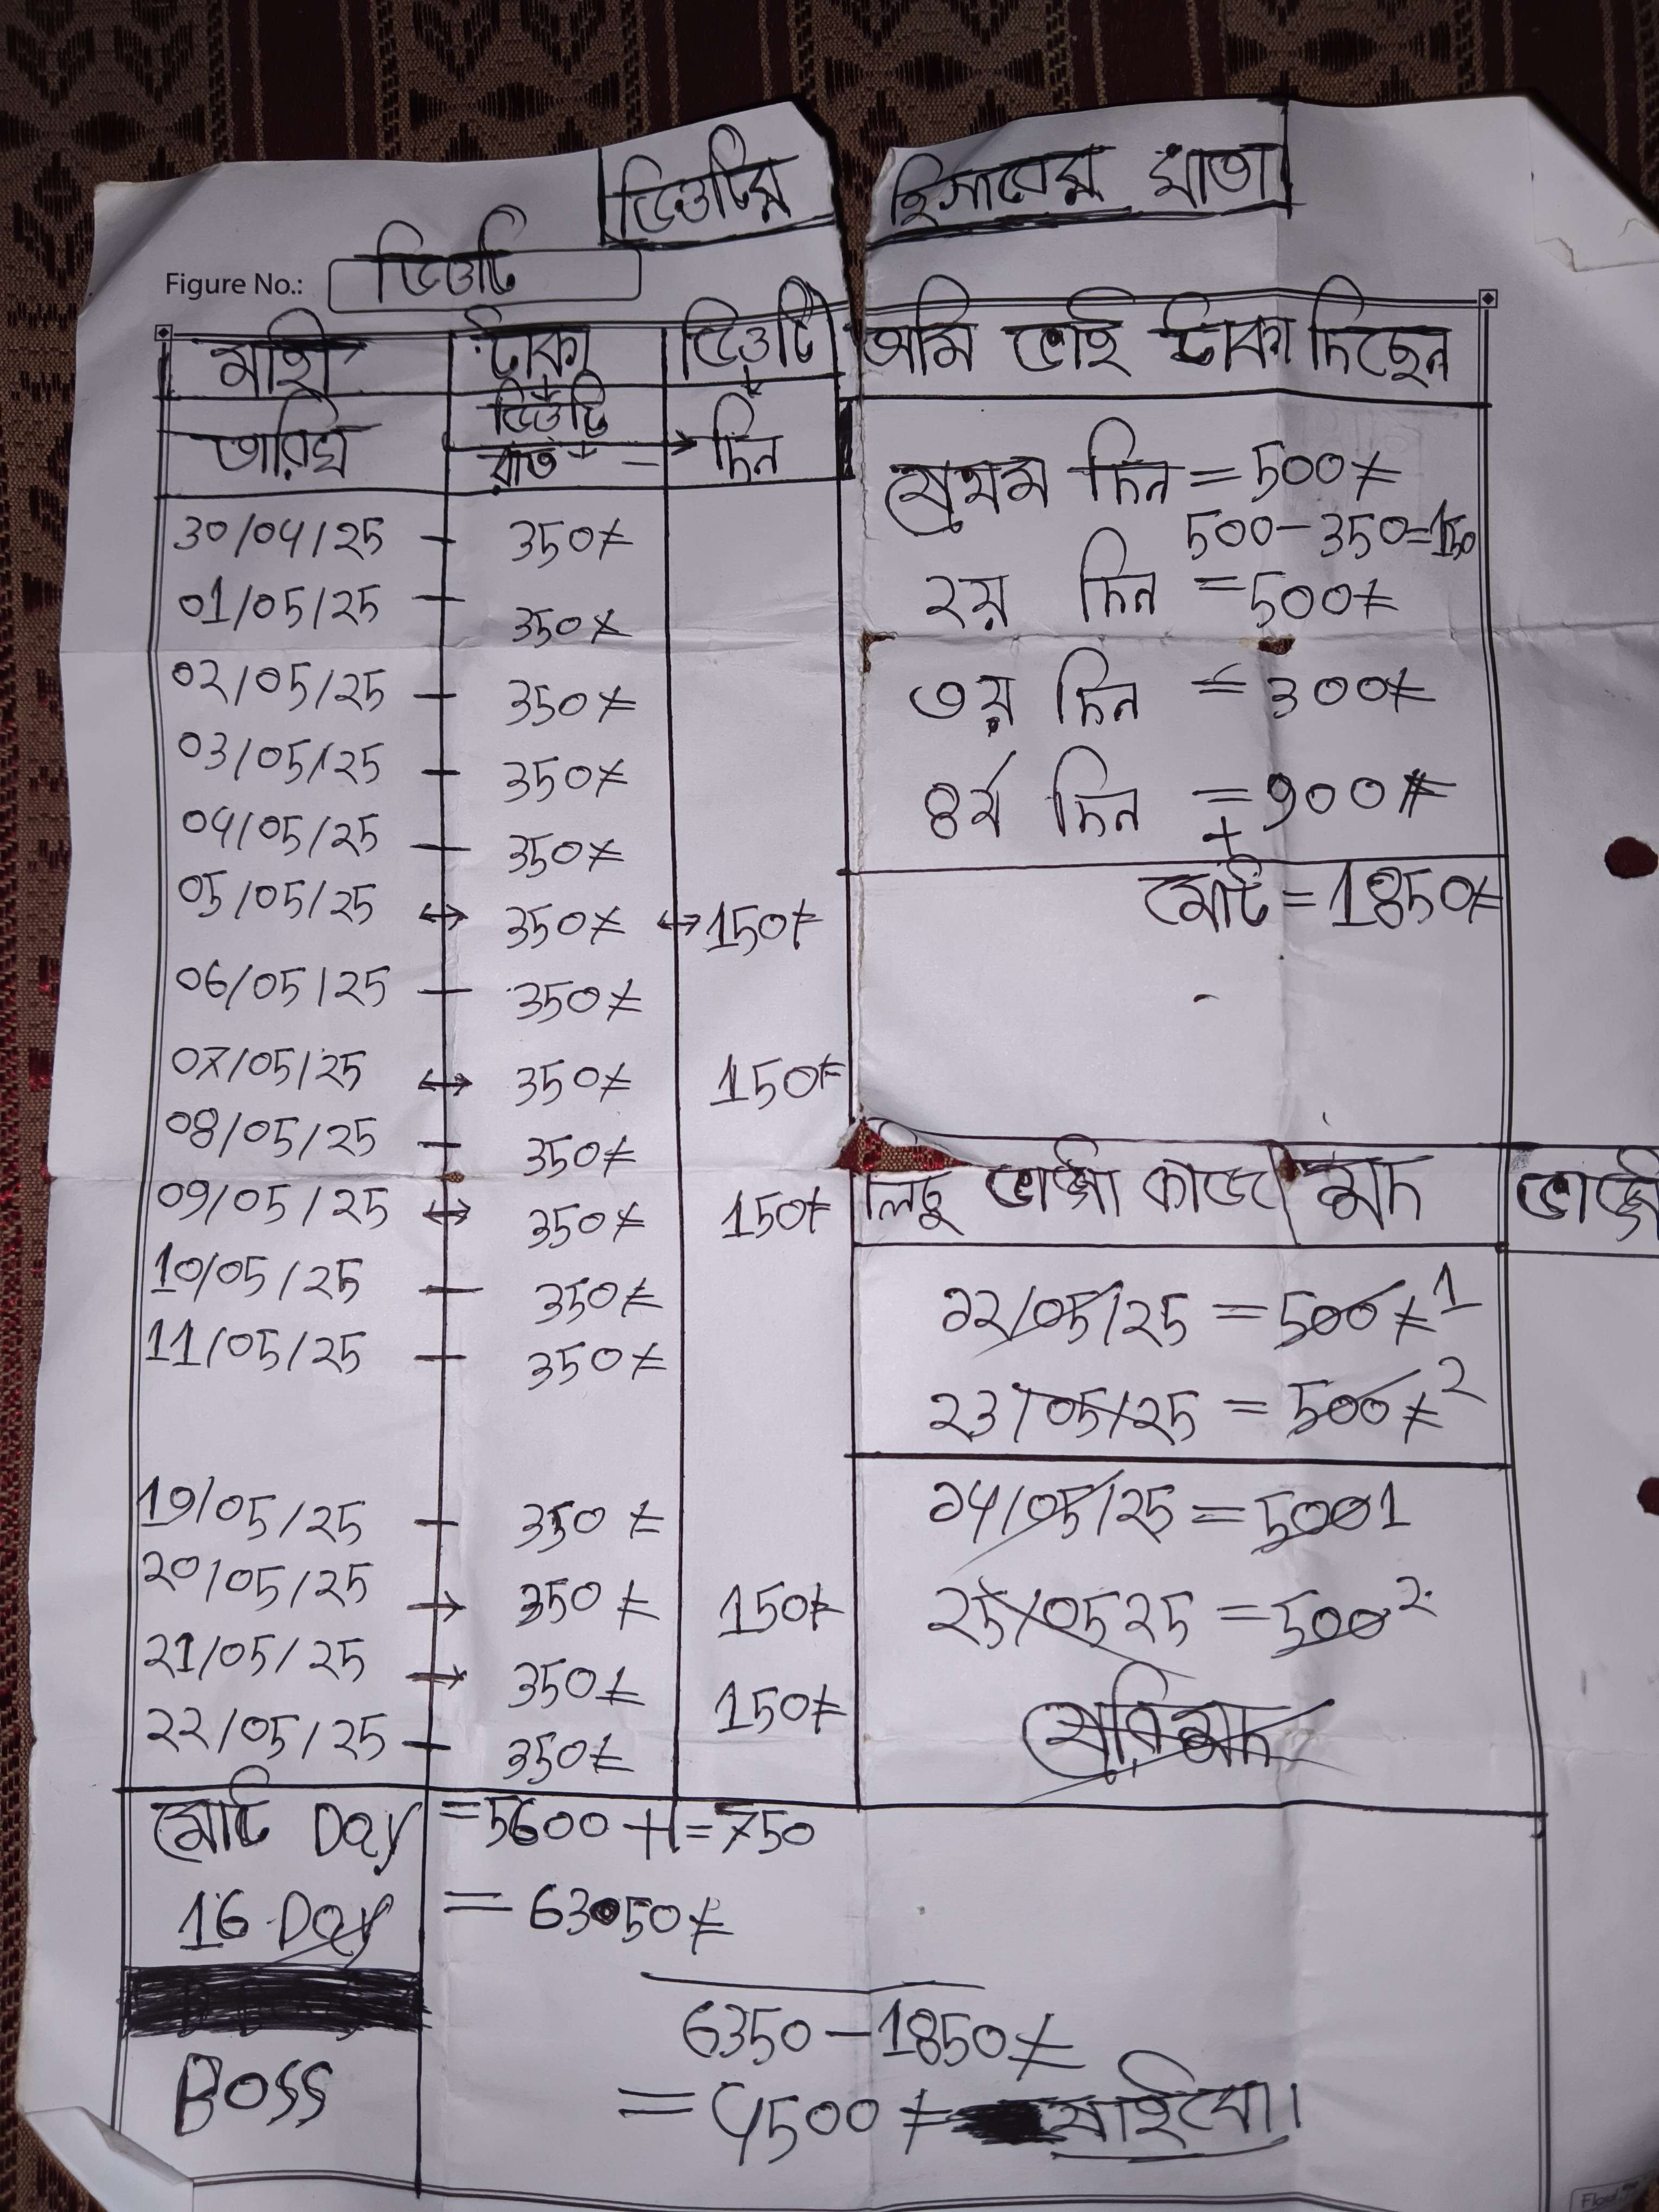 ডিউটির হিসাবের খাতা
Figure No.: ডিউটি
মাহী টাকা ডিউটি
তারিখ ডিউটি রাত → দিন
30/04/25 — 350/=
01/05/25 — 350/=
02/05/25 — 350/=
03/05/25 — 350/=
04/05/25 — 350/=
05/05/25 ↔ 350/= ↔ 150/=
06/05/25 — 350/=
07/05/25 ↔ 350/= 150/=
08/05/25 — 350/=
09/05/25 ↔ 350/= 150/=
10/05/25 — 350/=
11/05/25 — 350/=
19/05/25 — 350/=
20/05/25 → 350/= 150/=
21/05/25 → 350/= 150/=
22/05/25 — 350/=
মোট Day = 5600 + = 750
16 Day = 63050/=
6350 — 1850/=
BOSS
= 4500/= পাইবো।
অমি ভাই টাকা দিছেন
প্রথম দিন = 500/=
500 - 350 = 150
২য় দিন = 500/=
৩য় দিন = 300/=
৪র্থ দিন = 900/=
+
মোট = 1850/=
লিচু ভাঙ্গা কাজ
22/05/25 = 500/= 1
23/05/25 = 500/= 2
24/05/25 = 500 1
25/05 25 = 500 2